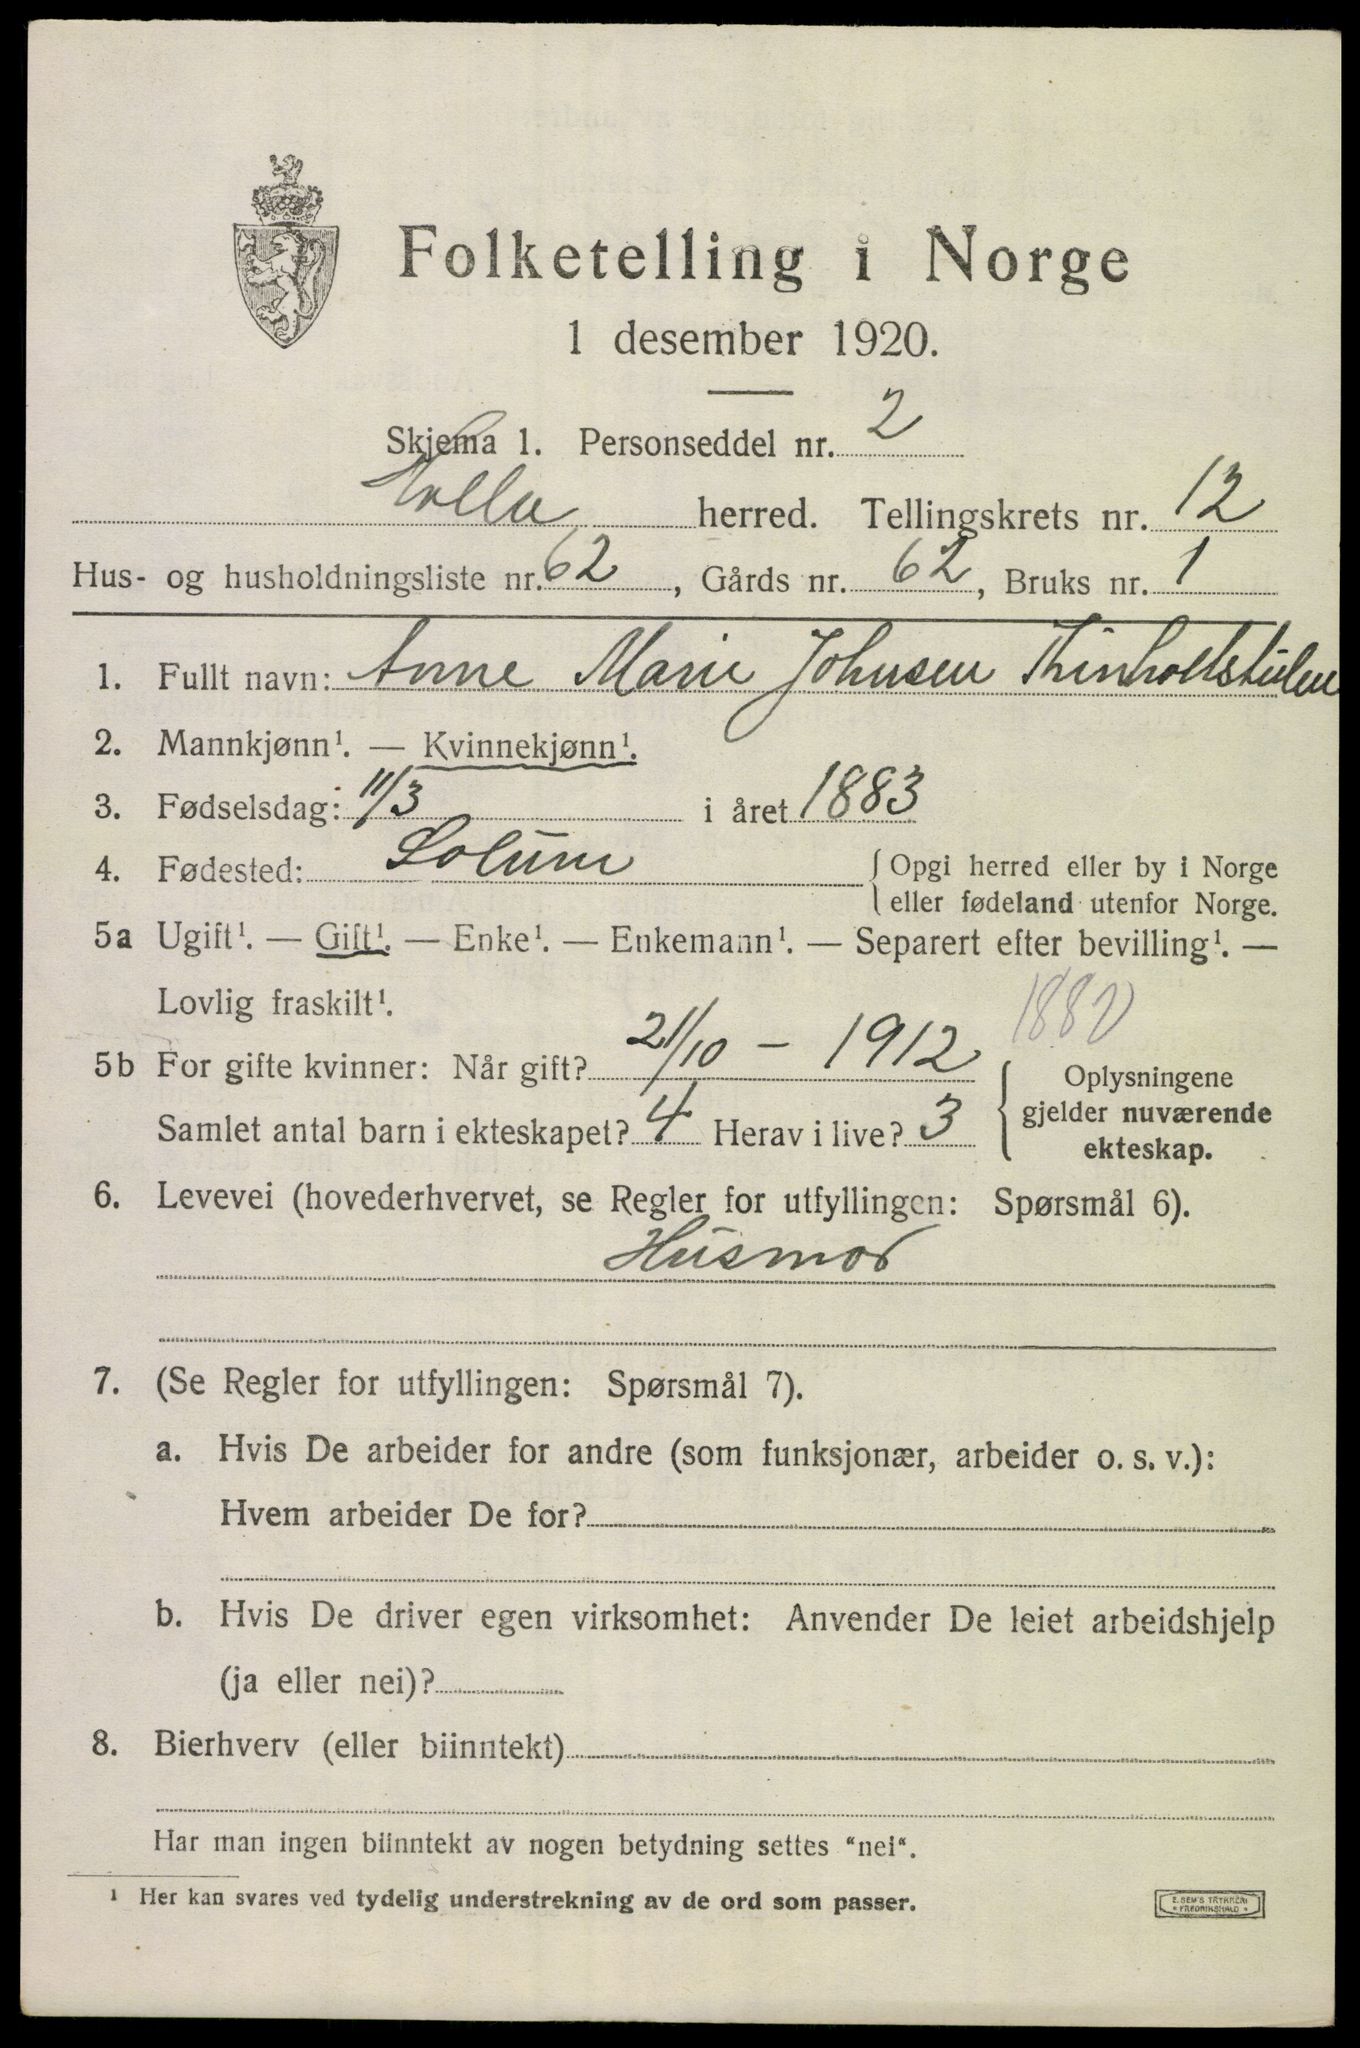 Folketelling i Norge
1 desember 1920.
Skjema 1. Personseddel nr. 2
Holla herred. Tellingskrets nr. 12
Hus- og husholdningsliste nr. 62, Gårds nr. 62, Bruks nr. 1
1. Fullt navn: Anne Marie Johnsen
2. Mannkjønn¹. — Kvinnekjønn¹.
3. Fødselsdag: 11/3 i året 1883
4. Fødested: Solum { Opgi herred eller by i Norge
eller fødeland utenfor Norge.
5a Ugift¹. — Gift¹. — Enke¹. — Enkemann¹. — Separert efter bevilling¹. —
Lovlig fraskilt¹.
5b For gifte kvinner: Når gift? 21/10 - 1912
Samlet antal barn i ekteskapet? 4 Herav i live? 3
Oplysningene
gjelder nuværende
ekteskap.
6. Levevei (hovederhvervet, se Regler for utfyllingen: Spørsmål 6).
Husmor
7. (Se Regler for utfyllingen: Spørsmål 7).
a. Hvis De arbeider for andre (som funksjonær, arbeider o. s. v.):
Hvem arbeider De for?
b. Hvis De driver egen virksomhet: Anvender De leiet arbeidshjelp
(ja eller nei)?
8. Bierhverv (eller biinntekt)
Har man ingen biinntekt av nogen betydning settes "nei".
¹ Her kan svares ved tydelig understrekning av de ord som passer.
E. SEM'S TRYKKERI
* FREDRIKSHALD *